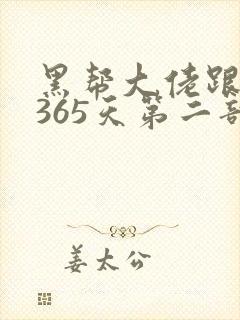 黑帮大佬跟
365天第二部
姜太公